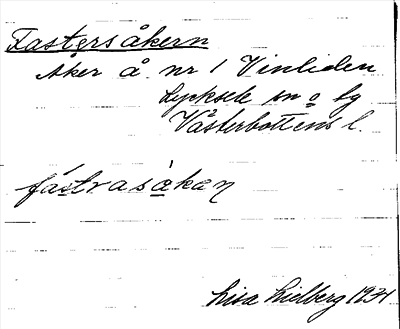 Fastersåkern
Åker å nr 1 Vinliden
Lycksele sn o by
Västerbottens l.
fástrasàkan
Lisa Lidberg 1931